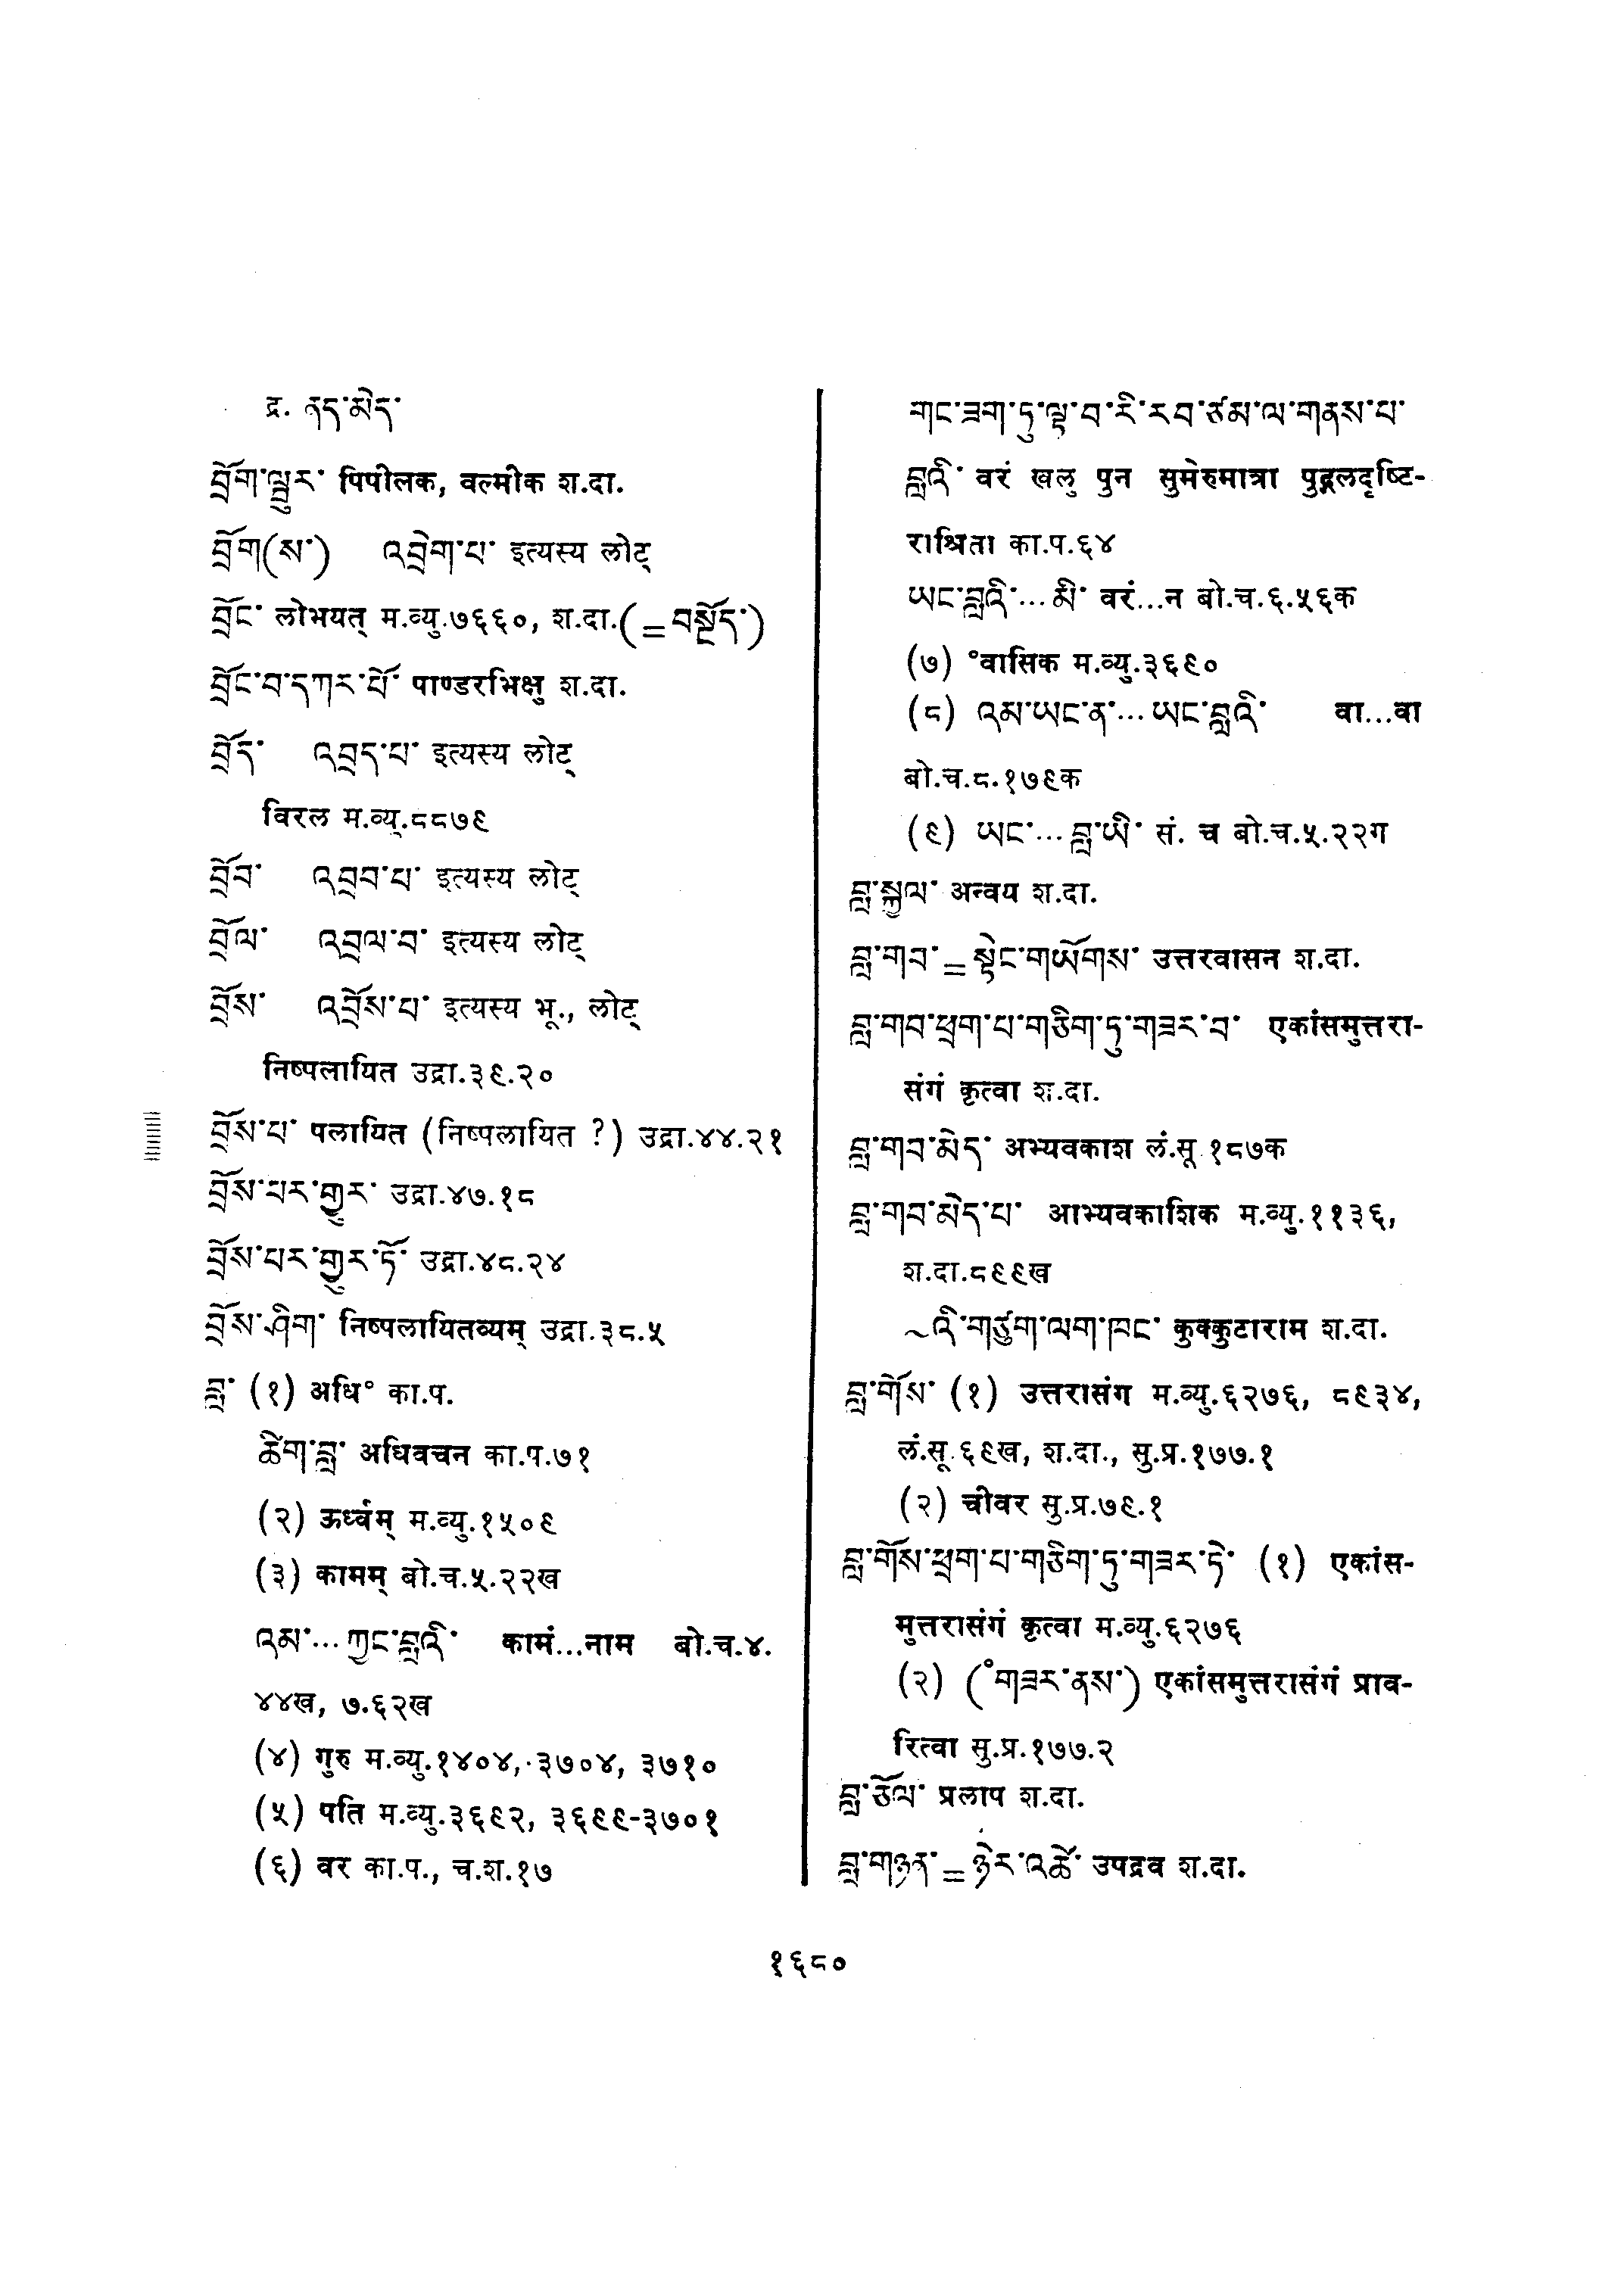 द्र. ནད་མེད་
བྲོག་ལྷུར་ पिपीलक, वल्मीक श.दा.
བྲོག(ས་) འབྲེག་པ་ इत्यस्य लोट्
བྲོང་ लोभयत् म.व्यु.७६६०, श.दा.(=བསྔོད་)
བྲོང་བ་དཀར་པོ་ पाण्डरभिक्षु श.दा.
བྲོད་ འབྲད་པ་ इत्यस्य लोट्
विरल म.व्यु.८८७९
བྲོབ་ འབྲབ་པ་ इत्यस्य लोट्
བྲོལ་ འབྲལ་བ་ इत्यस्य लोट्
བྲོས་ འབྲོས་པ་ इत्यस्य भू., लोट्
निष्पलायित उद्रा.३९.२०
བྲོས་པ་ पलायित (निष्पलायित ?) उद्रा.४४.२१
བྲོས་པར་གྱུར་ उद्रा.४७.१८
བྲོས་པར་གྱུར་ཏོ་ उद्रा.४८.२४
བྲོས་ཤིག་ निष्पलायितव्यम् उद्रा.३८.५
བླ་ (१) अधि° का.प.
ཚིག་བླ་ अधिवचन का.प.७१
(२) ऊर्ध्वम् म.व्यु.१५०९
(३) कामम् बो.च.५.२२ख
འམ་...ཀྱང་བླའི་ कामं...नाम बो.च.४.
४४ख, ७.६२ख
(४) गुरु म.व्यु.१४०४, ३७०४, ३७१०
(५) पति म.व्यु.३६९२, ३६९९-३७०१
(६) वर का.प., च.श.१७
གང་ཟག་ཏུ་ལྟ་བ་རི་རབ་ཙམ་ལ་གནས་པ་
བླའི་ वरं खलु पुन सुमेरुमात्रा पुद्गलदृष्टि-
राश्रिता का.प.६४
ཡང་བླའི་...མི་ वरं...न बो.च.६.५६क
(७) °वासिक म.व्यु.३६९०
(८) འམ་ཡང་ན་...ཡང་བླའི་ वा...वा
बो.च.८.१७९क
(९) ཡང་...བླ་ཡི་ सं. च बो.च.५.२२ग
བླ་སྐྱལ་ अन्वय श.दा.
བླ་གབ་=སྟེང་གཡོགས་ उत्तरवासन श.दा.
བླ་གབ་ཕྲག་པ་གཅིག་ཏུ་གཟར་བ་ एकांसमुत्तरा-
संगं कृत्वा श.दा.
བླ་གབ་མེད་ अभ्यवकाश लं.सू.१८७क
བླ་གབ་མེད་པ་ आभ्यवकाशिक म.व्यु.११३६,
श.दा.८९९ख
~འི་གཙུག་ལག་ཁང་ कुक्कुटाराम श.दा.
བླ་གོས་ (१) उत्तरासंग म.व्यु.६२७६, ८९३४,
लं.सू.६९ख, श.दा., सु.प्र.१७७.१
(२) चीवर सु.प्र.७९.१
བླ་གོས་ཕྲག་པ་གཅིག་ཏུ་གཟར་ཏེ་ (१) एकांस-
मुत्तरासंगं कृत्वा म.व्यु.६२७६
(२) (°གཟར་ནས་) एकांसमुत्तरासंगं प्राव-
रित्वा सु.प्र.१७७.२
བླ་ཅོལ་ प्रलाप श.दा.
བླ་གཉན་=ཉེར་འཚེ་ उपद्रव श.दा.
१६८०